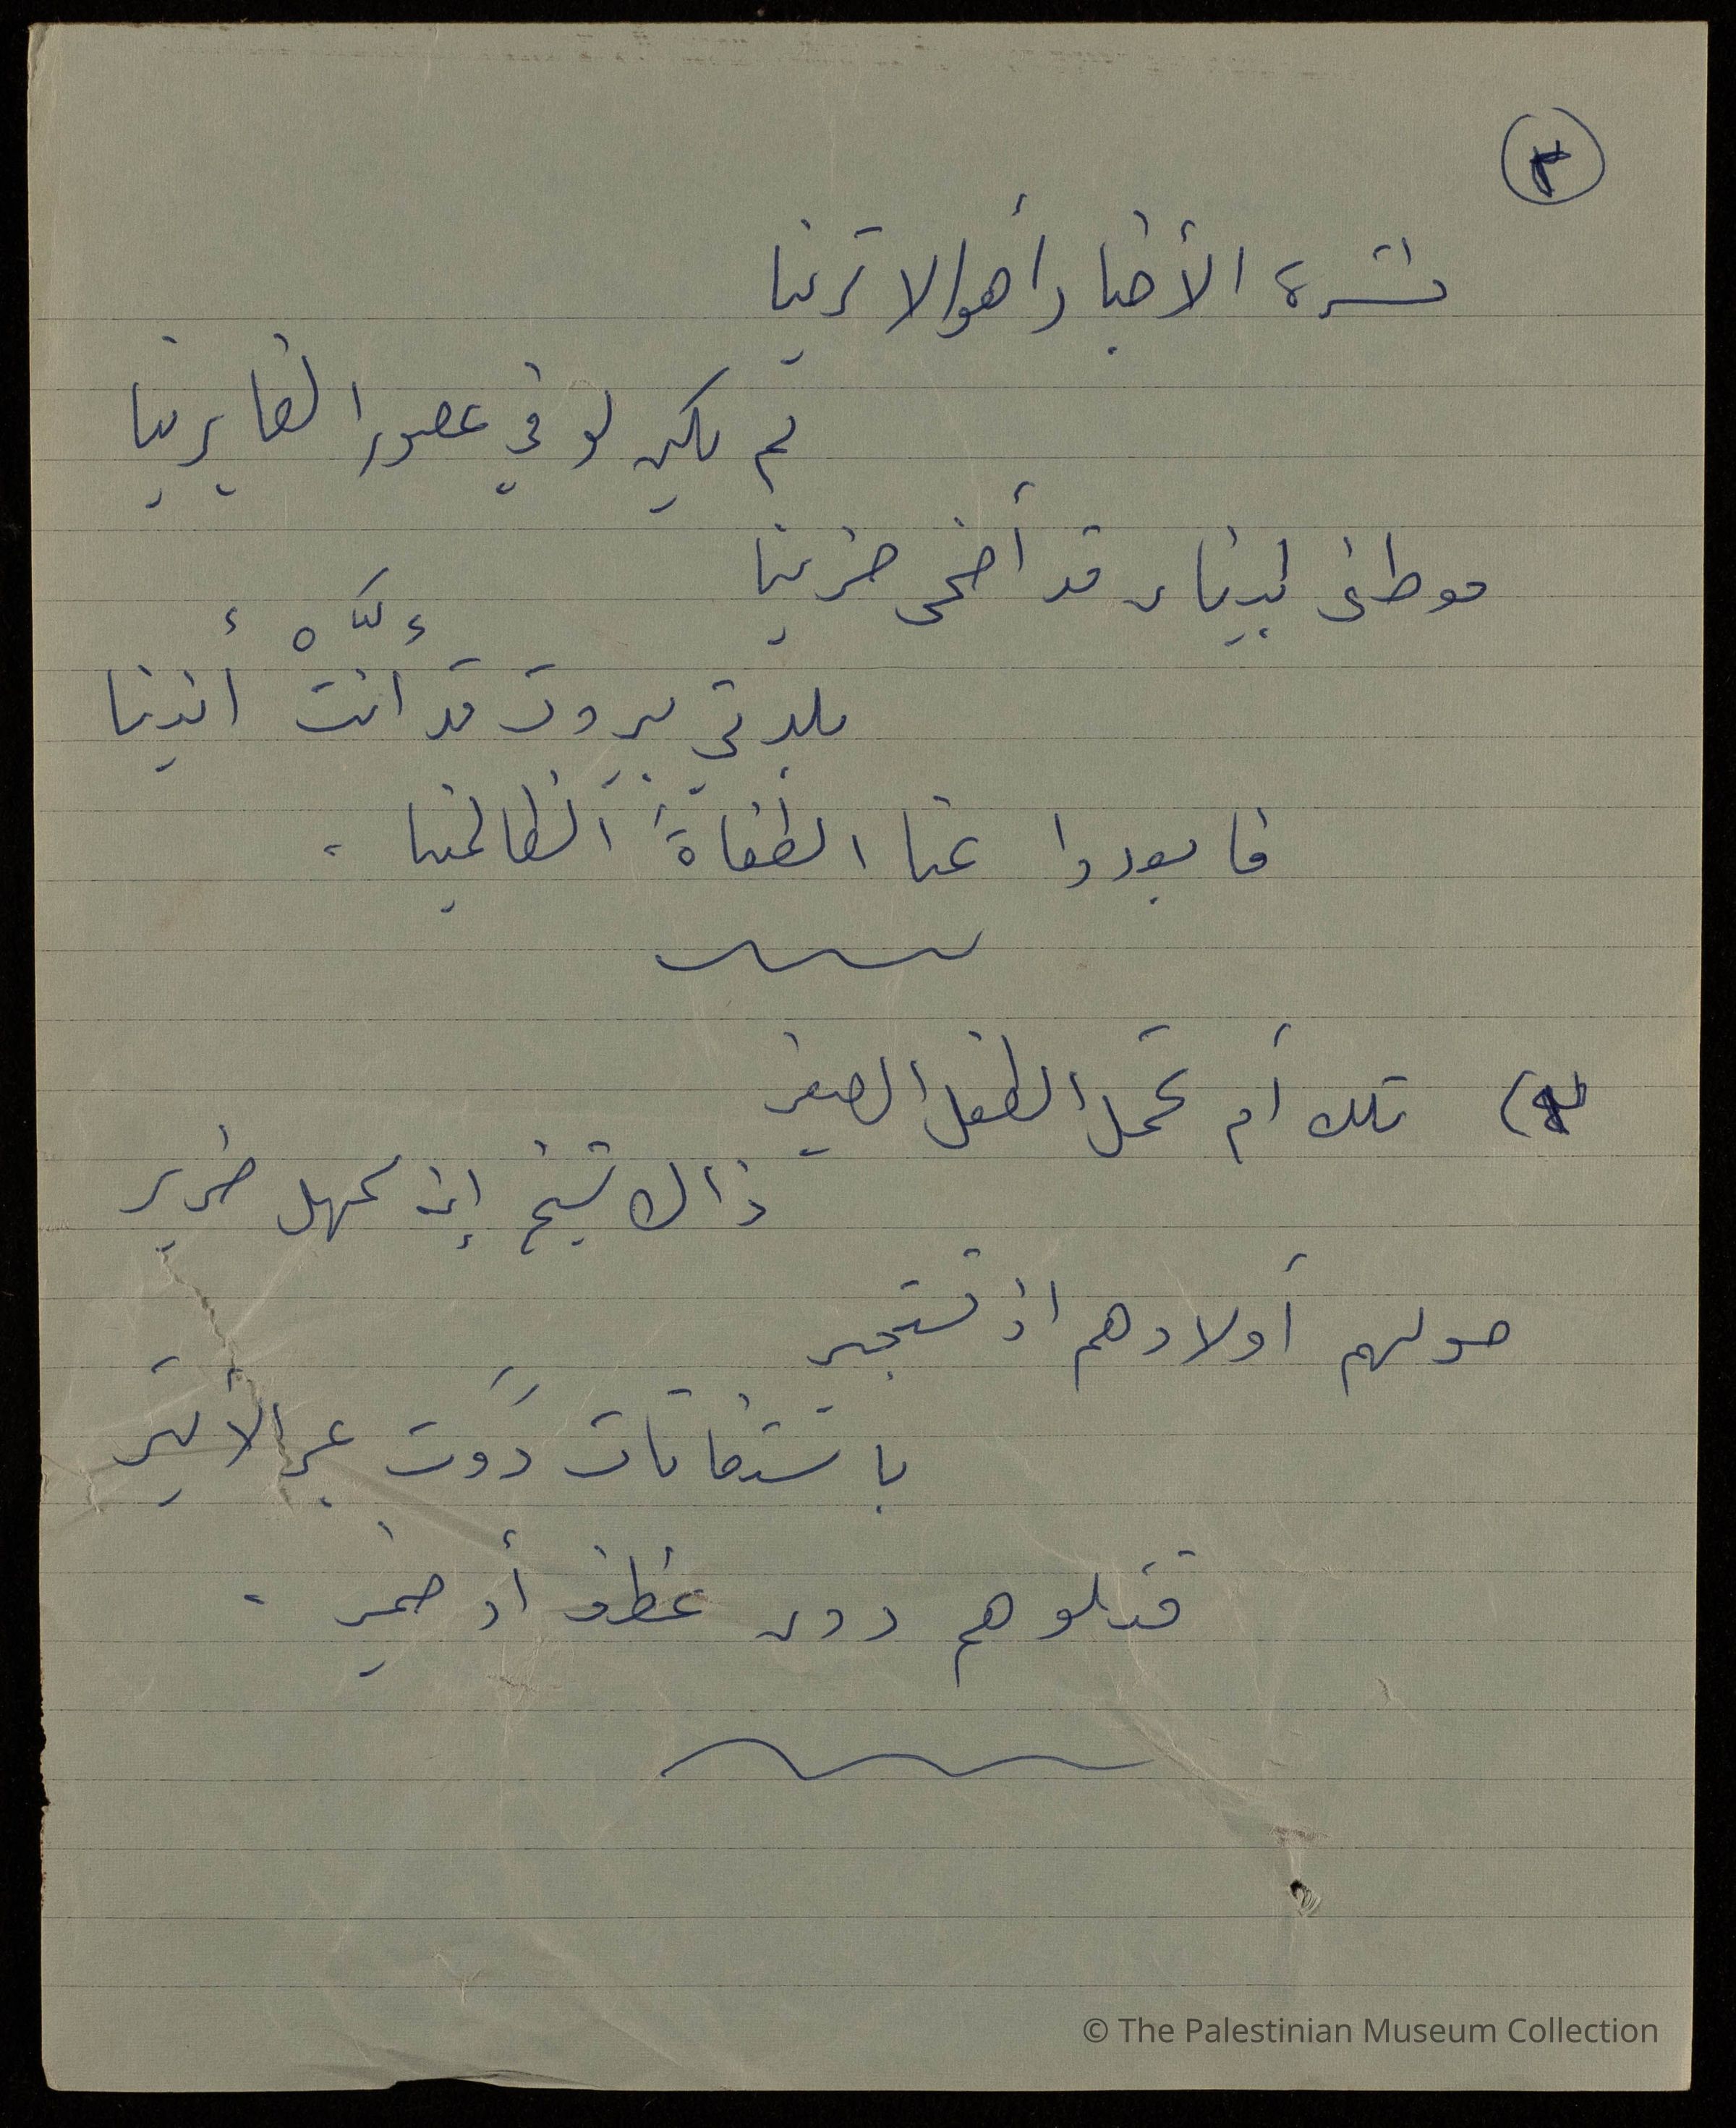 ٢
نشرة الأخبار أهوالا ترينا
لم يكن لو في عصور الغابرينا
موطني لبنان قد أضحى حزينا
بلدتي بيروت قد أنَّتْ أنينا
فابعدوا عنا الطغاةَ الظالمينا .
تلك أم تحمل الطفل الصغير
ذاك شيخ إن كهل ضرير
حولهم أولادهم اذ تستجير
باستغاثات دَوَت عبر الأثير
قتلوهم دون عطف أو ضمير .
© The Palestinian Museum Collection